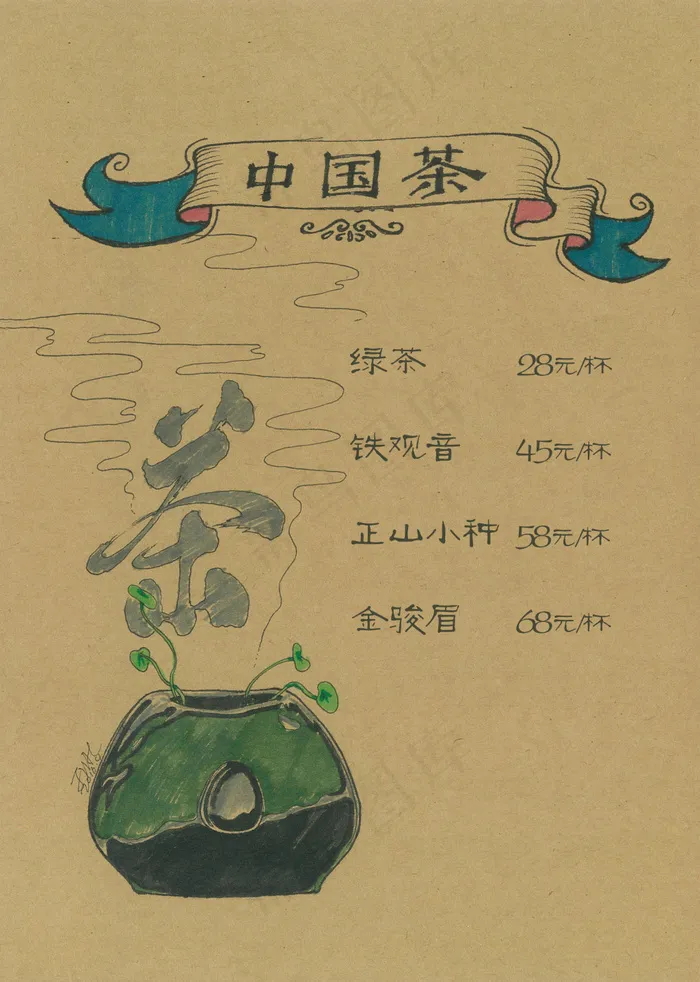 中国茶
茶
绿茶 28元/杯
铁观音 45元/杯
正山小种 58元/杯
金骏眉 68元/杯